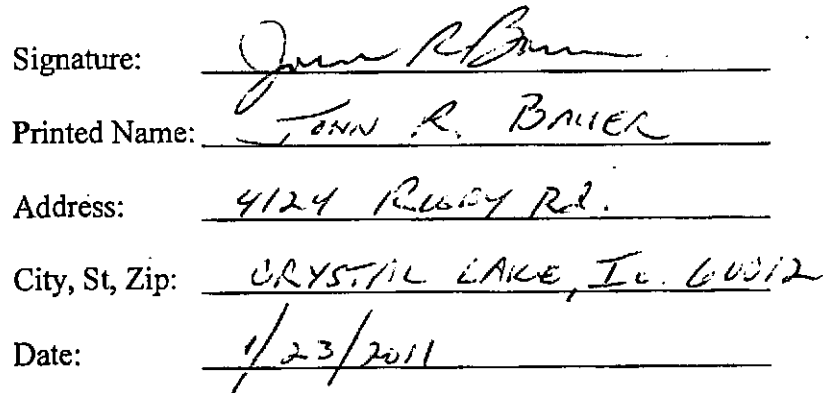 Signature: John R Bauer
Printed Name: JOHN R. BAUER
Address: 4124 Rd.
City, St, Zip: CRYSTAL LAKE, IL. 60012
Date: 1/23/2011